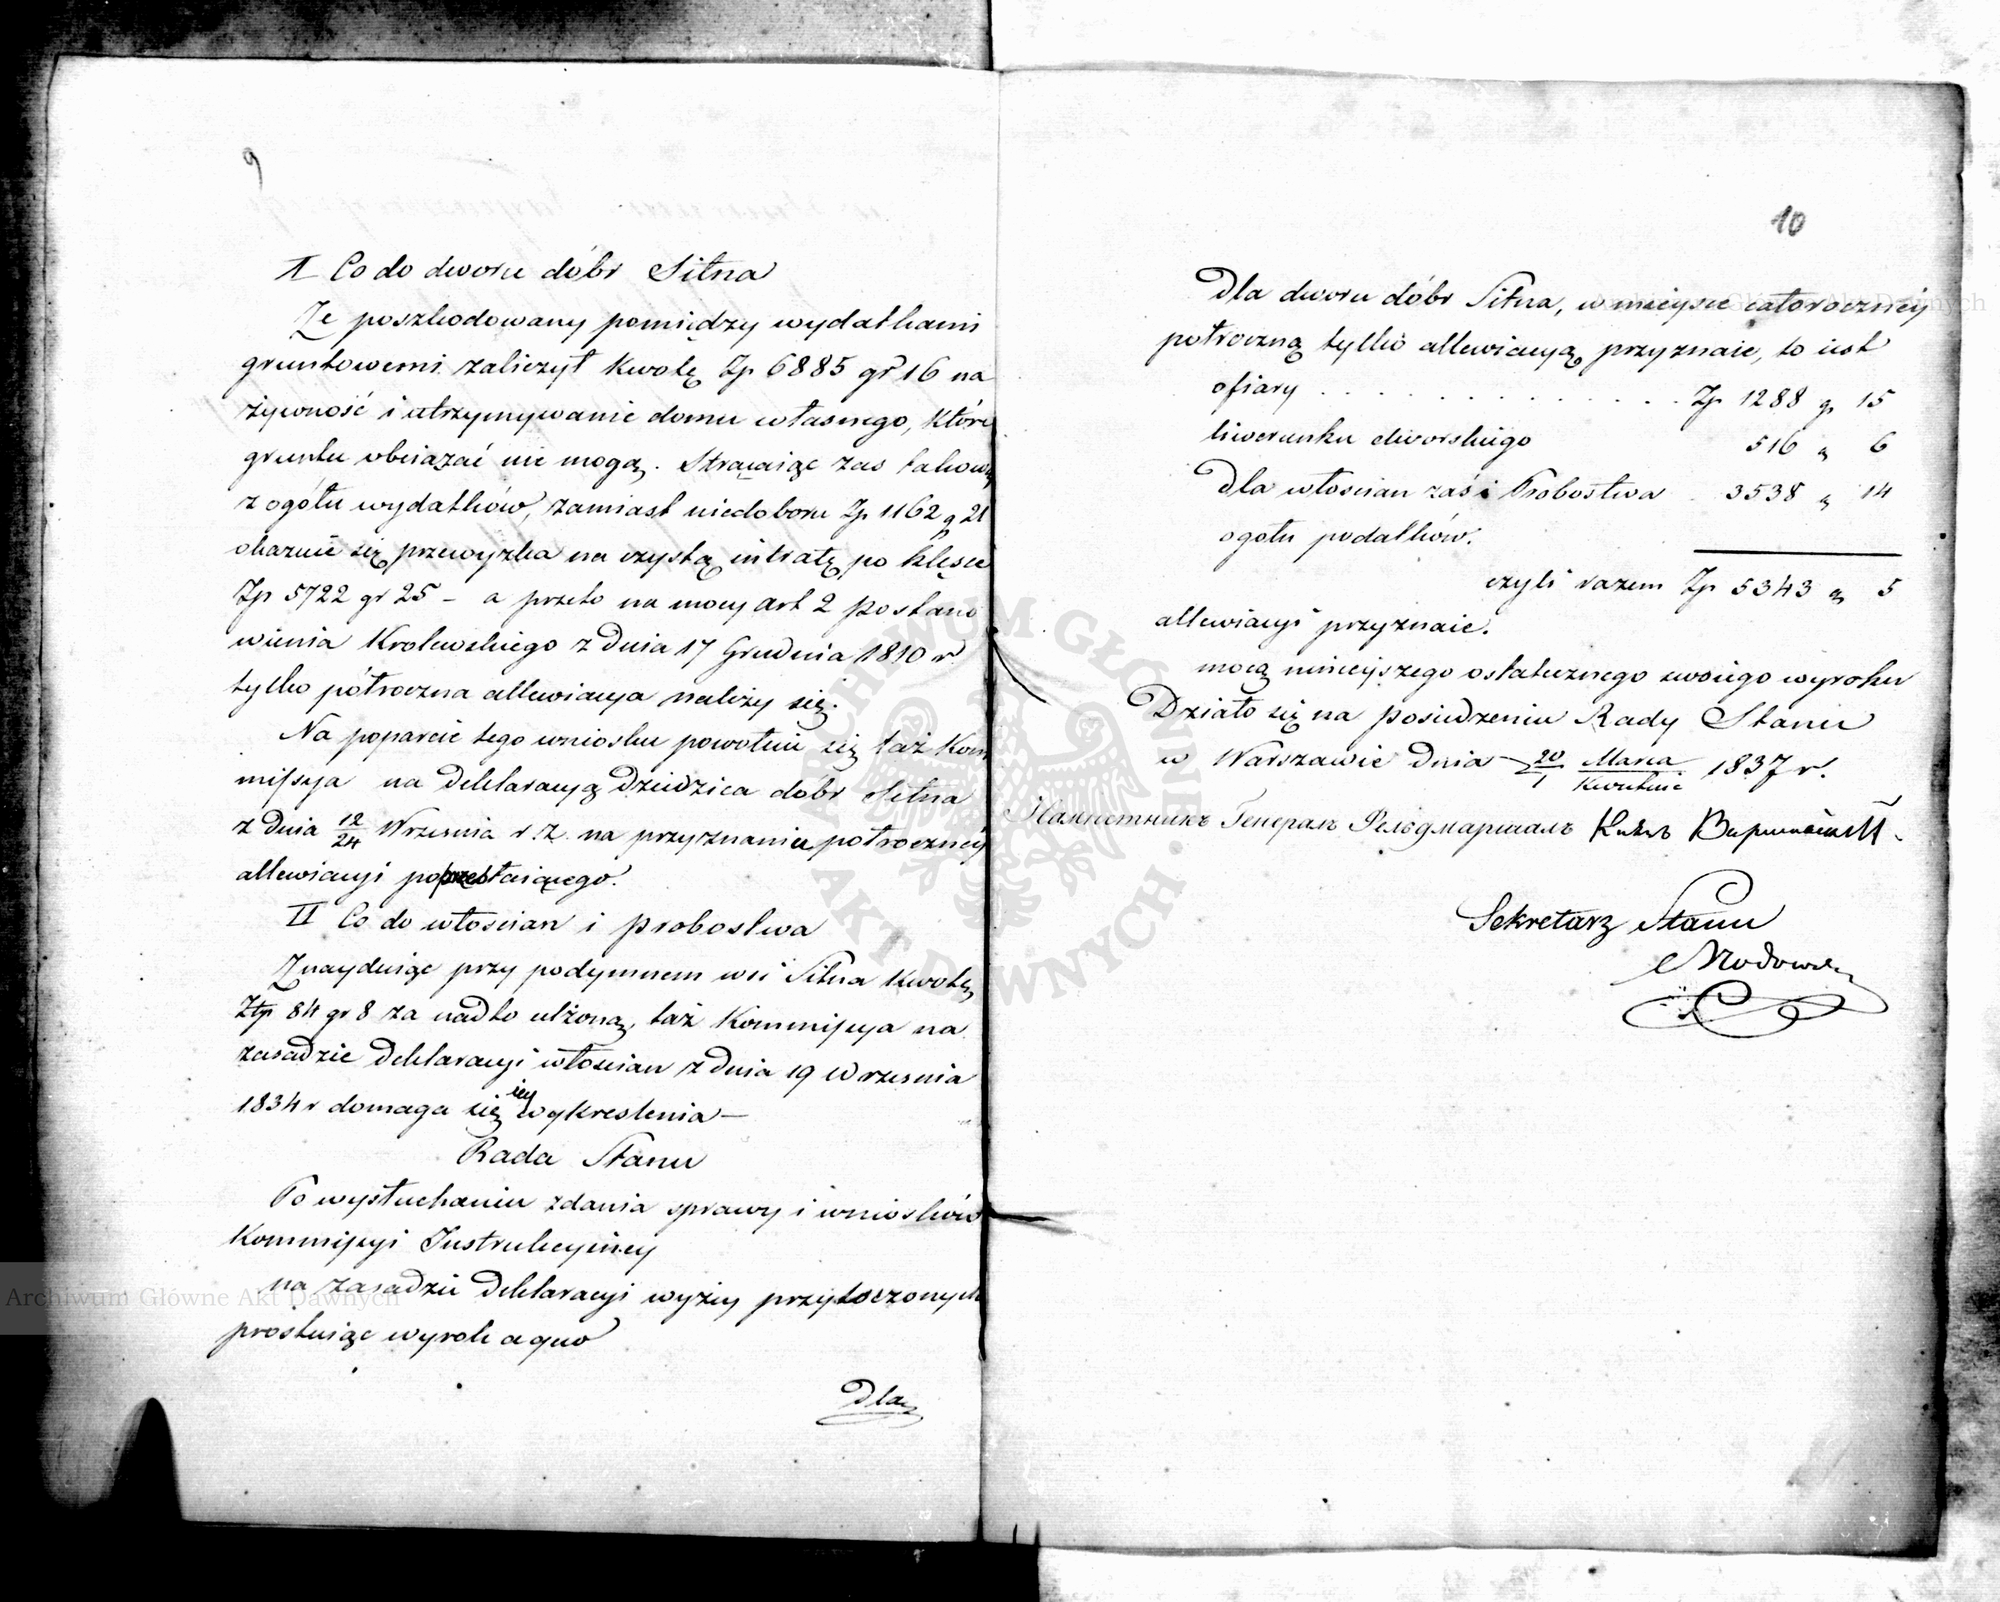 9
I Co do dworu dóbr Sitna
Ze poszkodowany pomiędzy wydatkami
gruntowemi zaliczył kwotę Zp 6885 gr 16 na
żywność i utrzymywanie domu własnego, które
gruntu obciążać nie mogą. Strącaiąc zas takową
z ogółu wydatków, zamiast niedoboru Zp 1162 g 21
okazuie się przewyżka na czystą intratę po klęsce
Zp 5722 gr 25 – a przeto na mocy art 2 Postano
wienia Krolewskiego z Dnia 17 Grudnia 1810 r.
tylko półroczna allewiacya należy się.
Na poparcie tego wniosku powołuie się taż Kom
missya na Deklaracyą Dziedzica dóbr Sitna
z Dnia 12/24 Września r. z. na przyznaniu połroczney
allewiacyi poprzestaiącego.
II Co do włoscian i probostwa
Znayduiąc przy podymnem wsi Sitna kwotę
Złp 84 gr 8 za nadto ulżoną, taż Kommissya na
zasadzie Deklaracyi włoscian z Dnia 19 Wrzesnia
1834 r domaga się iey wykreslenia –
Rada Stanu
Po wysłuchaniu zdania sprawy i wniosków
Kommissyi Instrukcyiney
na zasadzie Deklaracyi wyżey przytoczonych
prostuiąc wyrok a quo
Dla
10
Dla dworu dóbr Sitna, w mieysce całoroczney
połroczną tylko allewiacyą przyznaie, to iest
ofiary . . . . . . . . . . . . . . Zp 1288 g 15
liwerunku dworskiego 516 " 6
Dla włoscian zaś i Probostwa 3538 " 14
ogółu podatków.
czyli razem Zp 5343 " 5
allewiacyi przyznaie.
mocą ninieyszego ostatecznego swoiego wyroku
Działo się na posiedzeniu Rady Stanu
w Warszawie Dnia 20/1 Marca/Kwietnia 1837 r.
Намѣстникъ Генералъ Фельдмаршалъ Князь Варшавскій
Sekretarz Stanu
Archiwum Główne Akt Dawnych
ARCHIWUM GŁÓWNE AKT DAWNYCH
Archiwum Główne Akt Dawnych